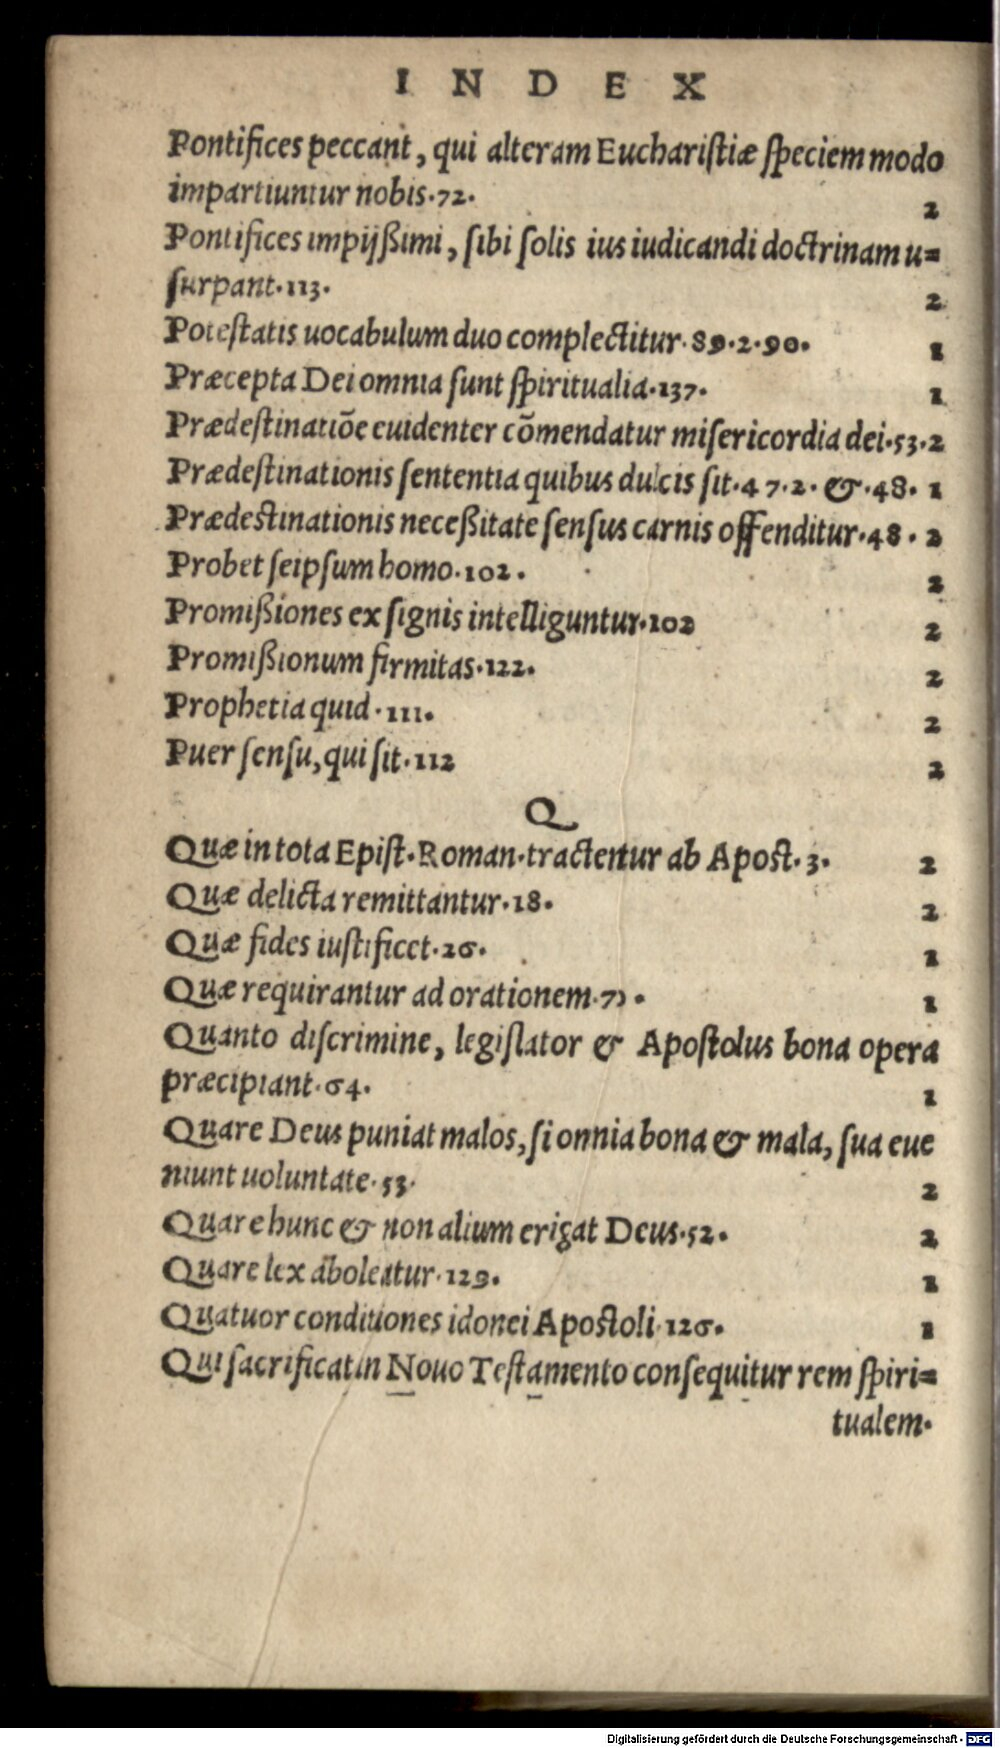 INDEX
Pontifices peccant, qui alteram Euchariſtiæ ſpeciem modo
impartiuntur nobis.72. 2
Pontifices impijßimi, ſibi ſolis ius iudicandi doctrinam u=
ſurpant.113. 2
Poteſtatis uocabulum duo complectitur.89.2.90. 1
Præcepta Dei omnia ſunt ſpiritualia.137. 1
Prædeſtinatiōe euidenter cōmendatur miſericordia dei.53.2
Prædeſtinationis ſententia quibus dulcis ſit.47.2. &.48. 1
Prædestinationis neceßitate ſenſus carnis offenditur.48. 2
Probet ſeipſum homo.102. 2
Promißiones ex ſignis intelliguntur.102 2
Promißionum firmitas.122. 2
Prophetia quid.111. 2
Puer ſenſu, qui ſit.112 2
Q
Quæ in tota Epiſt.Roman.tractentur ab Apost.3. 2
Quæ delicta remittantur.18. 2
Quæ fides iuſtificet.26. 1
Quæ requirantur ad orationem.71. 1
Quanto diſcrimine, legiſlator & Apoſtolus bona opera
præcipiant.64. 1
Quare Deus puniat malos, ſi omnia bona & mala, ſua eue
niunt uoluntate.53. 2
Quare hunc & non alium erigat Deus.52. 2
Quare lex aboleatur.129. 1
Quatuor conditiones idonei Apostoli.126. 1
Qui ſacrificat in Nouo Teſtamento conſequitur rem ſpiri=
tualem.
Digitalisierung gefördert durch die Deutsche Forschungsgemeinschaft - DFG